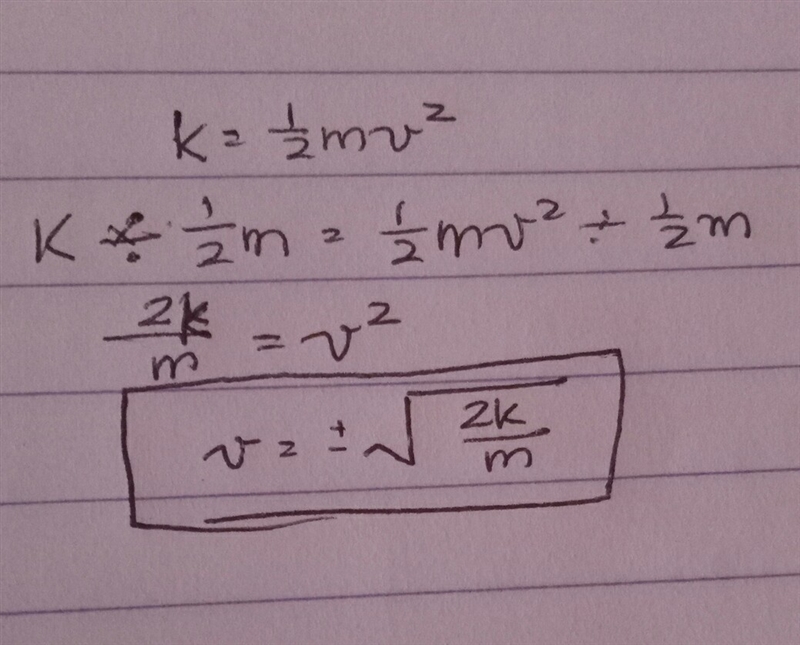 k = 1/2 mv²
K ÷ 1/2 m = 1/2 mv² ÷ 1/2 m
2k/m = v²
v = ± √(2k/m)